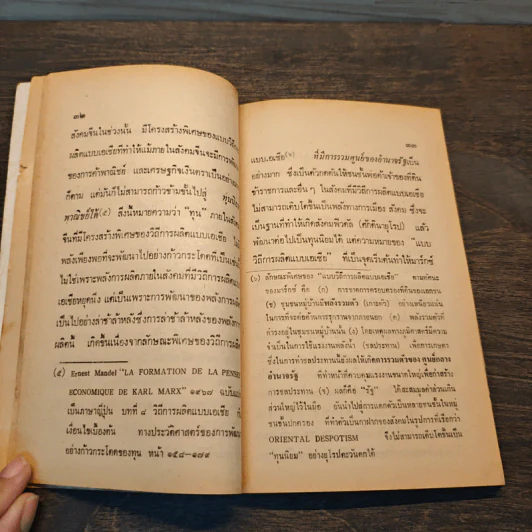 ๓๒
สังคมจีนในช่วงนั้น มีโครงสร้างพิเศษของแบบวิถี
ผลิตแบบเอเชียที่ทำให้แม้ภายในสังคมจีนจะมีการพัฒ
ของการค้าพาณิชย์ และเศรษฐกิจเงินตราเป็นอย่าง
ก็ตาม แต่มันก็ไม่สามารถก้าวข้ามขั้นไปสู่
พาณิชย์ได้(๕) สิ่งนี้หมายความว่า "ทุน" ภายในสัง
จีนที่มีโครงสร้างพิเศษของวิถีการผลิตแบบเอเชีย
พลังเพียงพอที่จะพัฒนาไปอย่างก้าวกระโดดที่เป็นเช่น
ไม่ใช่เพราะพลังการผลิตภายในสังคมที่มีวิถีการผลิตแ
เอเชียหยุดนิ่ง แต่เป็นเพราะการพัฒนาของพลังการผล
เป็นไปอย่างล่าช้าล้าหลังซึ่งการล่าช้าล้าหลังของพลังการ
ผลิตนี้ เกิดขึ้นเนื่องจากลักษณะพิเศษของวิถีการผลิต
(๕) Ernest Mandel "LA FORMATION DE LA PENSE
ECONOMIQUE DE KARL MARX" ๑๙๖๘ ฉบับแปล
เป็นภาษาญี่ปุ่น บทที่ ๘ วิถีการผลิตแบบเอเชีย
เงื่อนไขเบื้องต้น ทางประวัติศาสตร์ของการพัฒ
อย่างก้าวกระโดดของทุน หน้า ๑๕๘-๑๗๙
๓๓
แบบเอเชีย(๖) ที่มีการรวมศูนย์ของอำนาจรัฐเป็น
อย่างมาก ซึ่งเป็นตัวกดดันให้ชนชั้นพ่อค้าเจ้าของที่ดิน
ข้าราชการและอื่นๆ ในสังคมที่มีวิถีการผลิตแบบเอเชีย
ไม่สามารถเติบโตขึ้นเป็นพลังทางการเมือง สังคม ซึ่งจะ
เป็นฐานที่ทำให้เกิดสังคมฟิวดัล (ศักดินายุโรป) แล้ว
พัฒนาต่อไปเป็นทุนนิยมได้ แต่ความหมายของ "แบบ
วิถีการผลิตแบบเอเชีย" ที่เป็นจุดเริ่มต้นทำให้มาร์กซ์
(๖) ลักษณะพิเศษของ "แบบวิถีการผลิตแบบเอเชีย" ตามทัศนะ
ของมาร์กซ์ คือ (ก) การขาดการครอบครองที่ดินของเอกชน
(ข) ชุมชนหมู่บ้านมีพลังรวมตัว (เกาะตัว) อย่างเหนียวแน่น
ในการที่จะต่อต้านการรุกรานจากภายนอก (ค) พลังรวมตัวที่
ดำรงอยู่ในชุมชนหมู่บ้านนั้น (ง) โดยเหตุผลทางภูมิศาสตร์มีความ
จำเป็นในการใช้แรงงานพลังน้ำ (ชลประทาน) เพื่อการเกษตร
ซึ่งในการทำชลประทานนี้ยังผลให้เกิดการรวมตัวของ ศูนย์กลาง
อำนาจรัฐ ที่ทำหน้าที่ควบคุมแรงงานขนาดใหญ่เพื่อทำสร้าง
การชลประทาน (จ) ผลก็คือ "รัฐ" ได้สะสมมูลค่าส่วนเกิน
ส่วนใหญ่ไว้ในมือ อันนำไปสู่การแตกตัวเป็นหลายชนชั้นในหมู่
ชนชั้นปกครอง ที่ทำตัวเป็นกาฝากของสังคมในรูปการที่เรียกว่า
ORIENTAL DESPOTISM จึงไม่สามารถเติบโตขึ้นเป็น
"ทุนนิยม" อย่างยุโรปตะวันตกได้